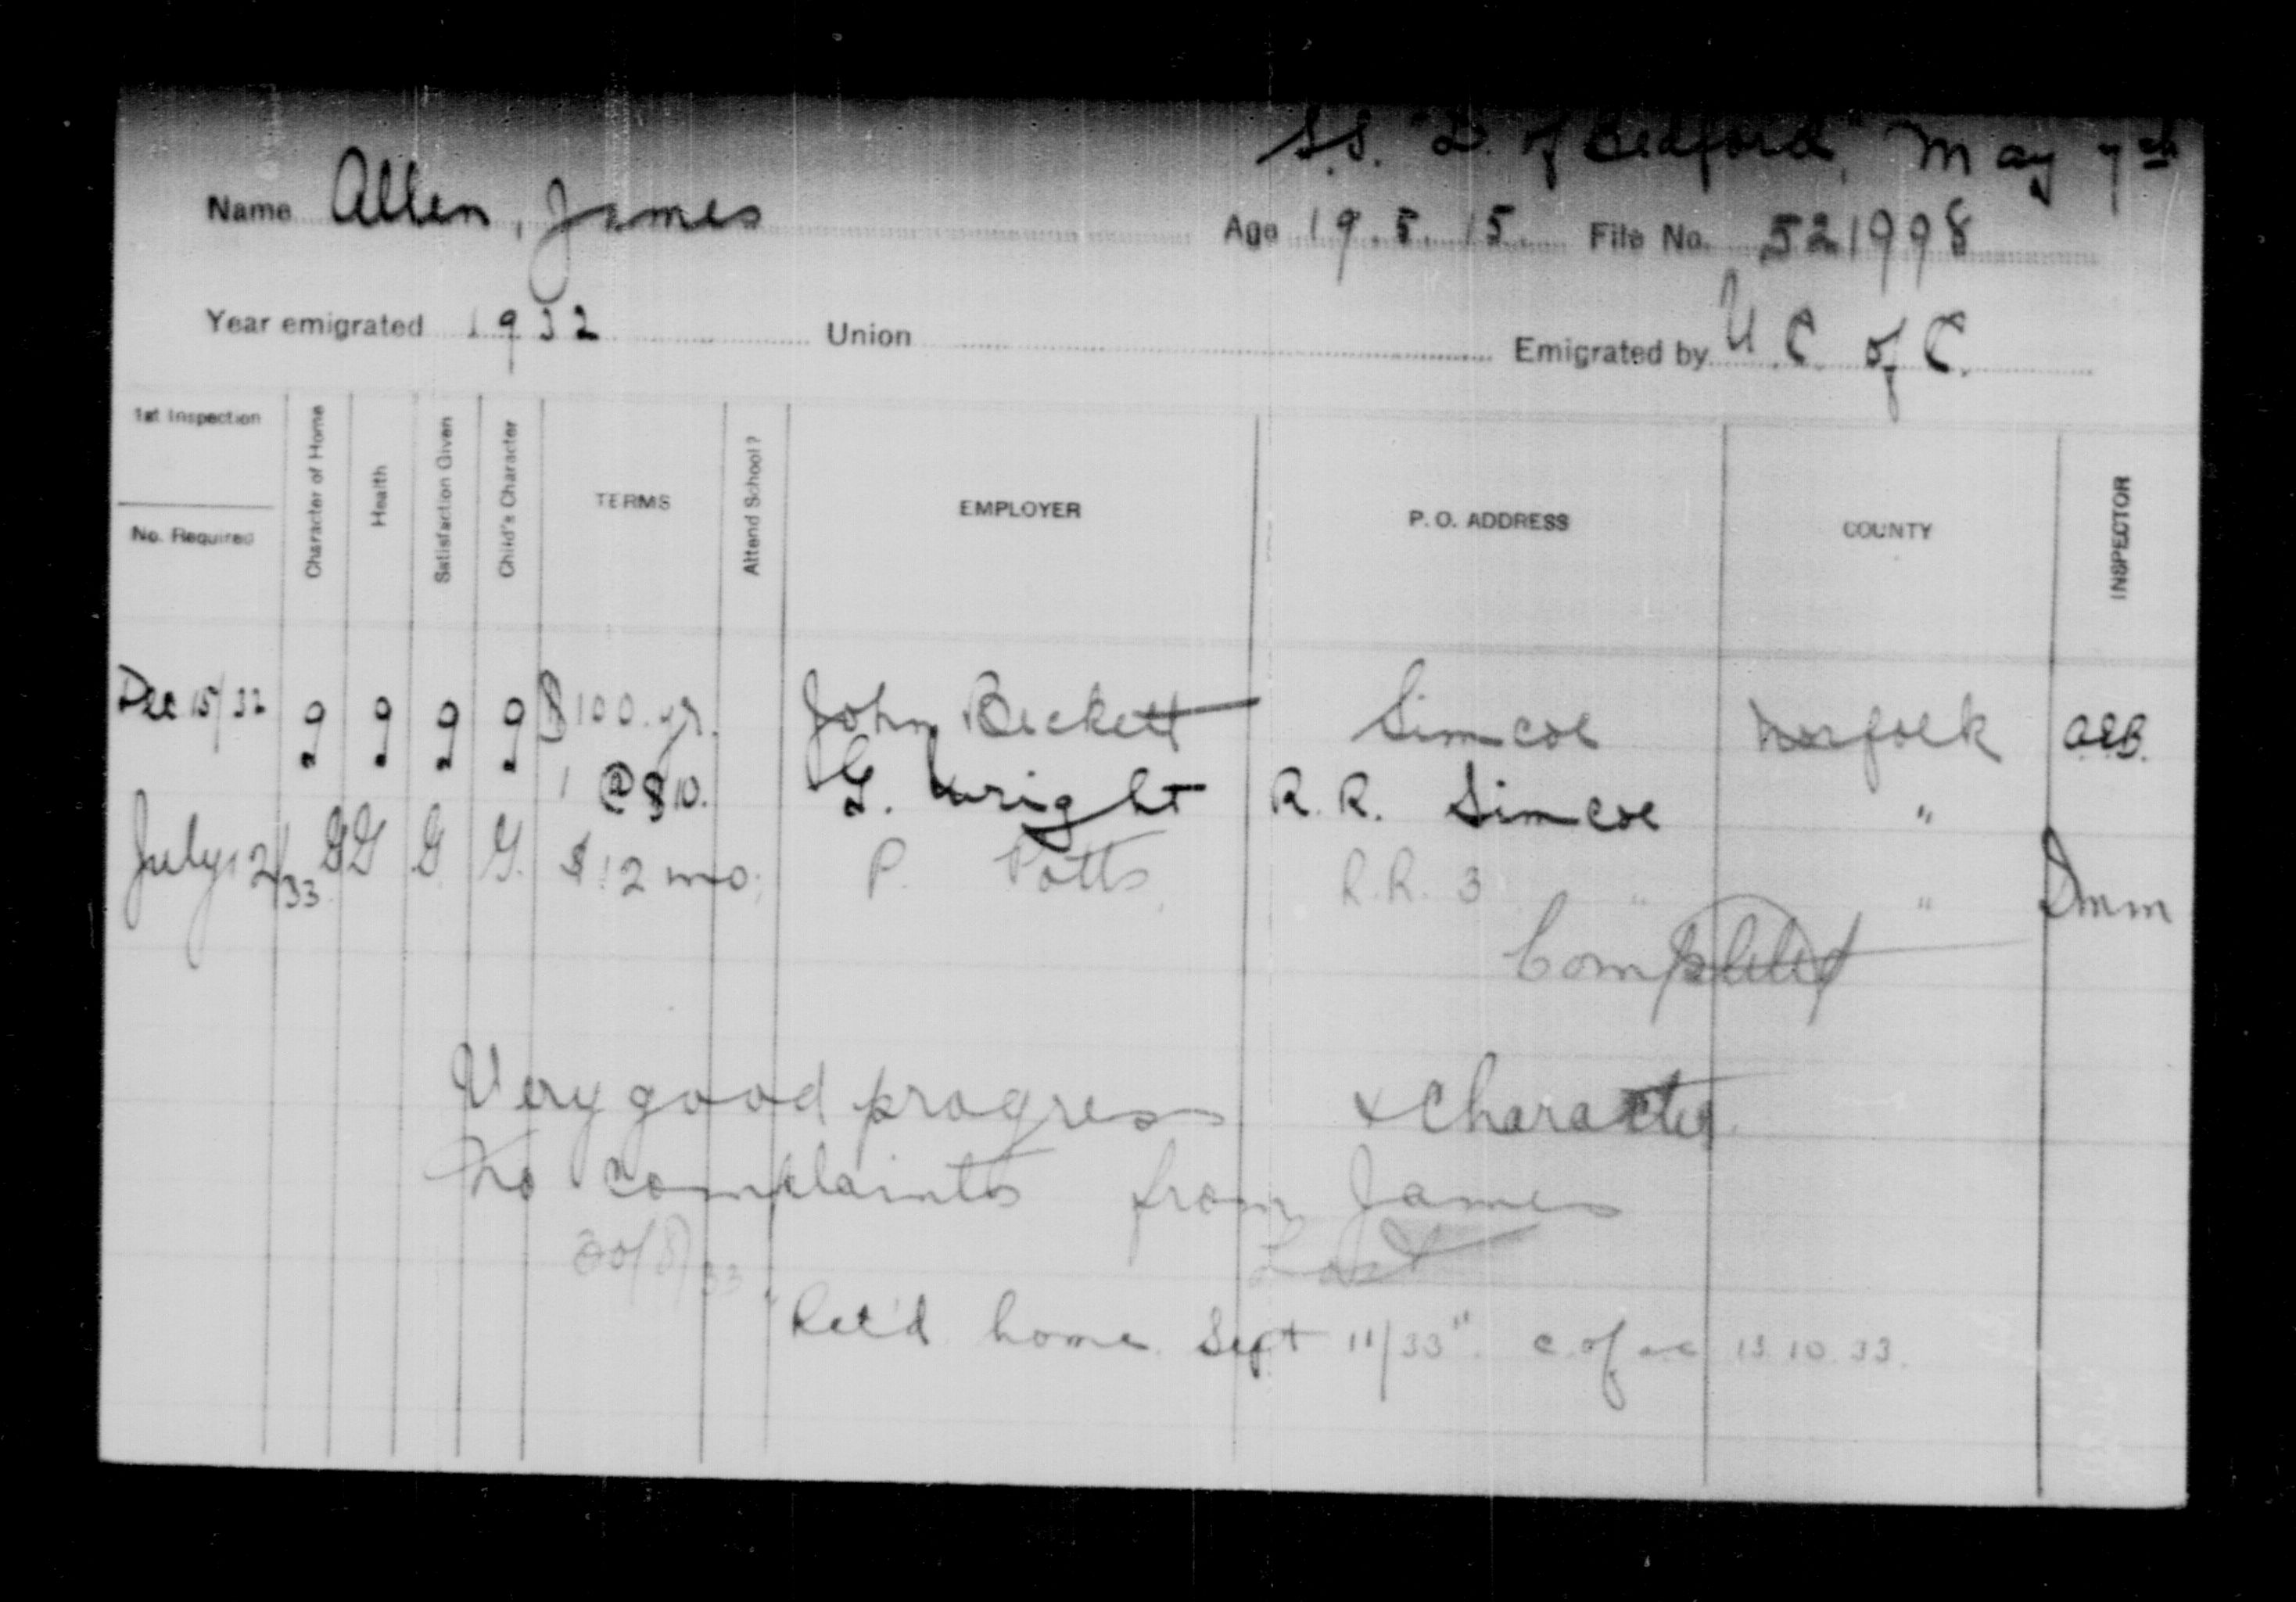 S.S. "D. of Bedford" May 7th
Name Allen, James Age 19.5.15. File No. 521998
Year emigrated 1932 Union Emigrated by U.C. of C.
1st Inspection
No. Required
Character of Home
Health
Satisfaction Given
Child's Character
TERMS
Attend School?
EMPLOYER
P. O. ADDRESS
COUNTY
INSPECTOR
Dec 15/32 g g g g $100.yr. John Beckett Simcoe Norfolk
1 @ $10. G. Wright R. R. Simcoe "
July 12/33 G G G G. $12 mo. P. Potts R.R. 3 " "
Completed
Very good progress & Character
No complaints from James
Ret'd home Sept 11/33". 13.10.33.